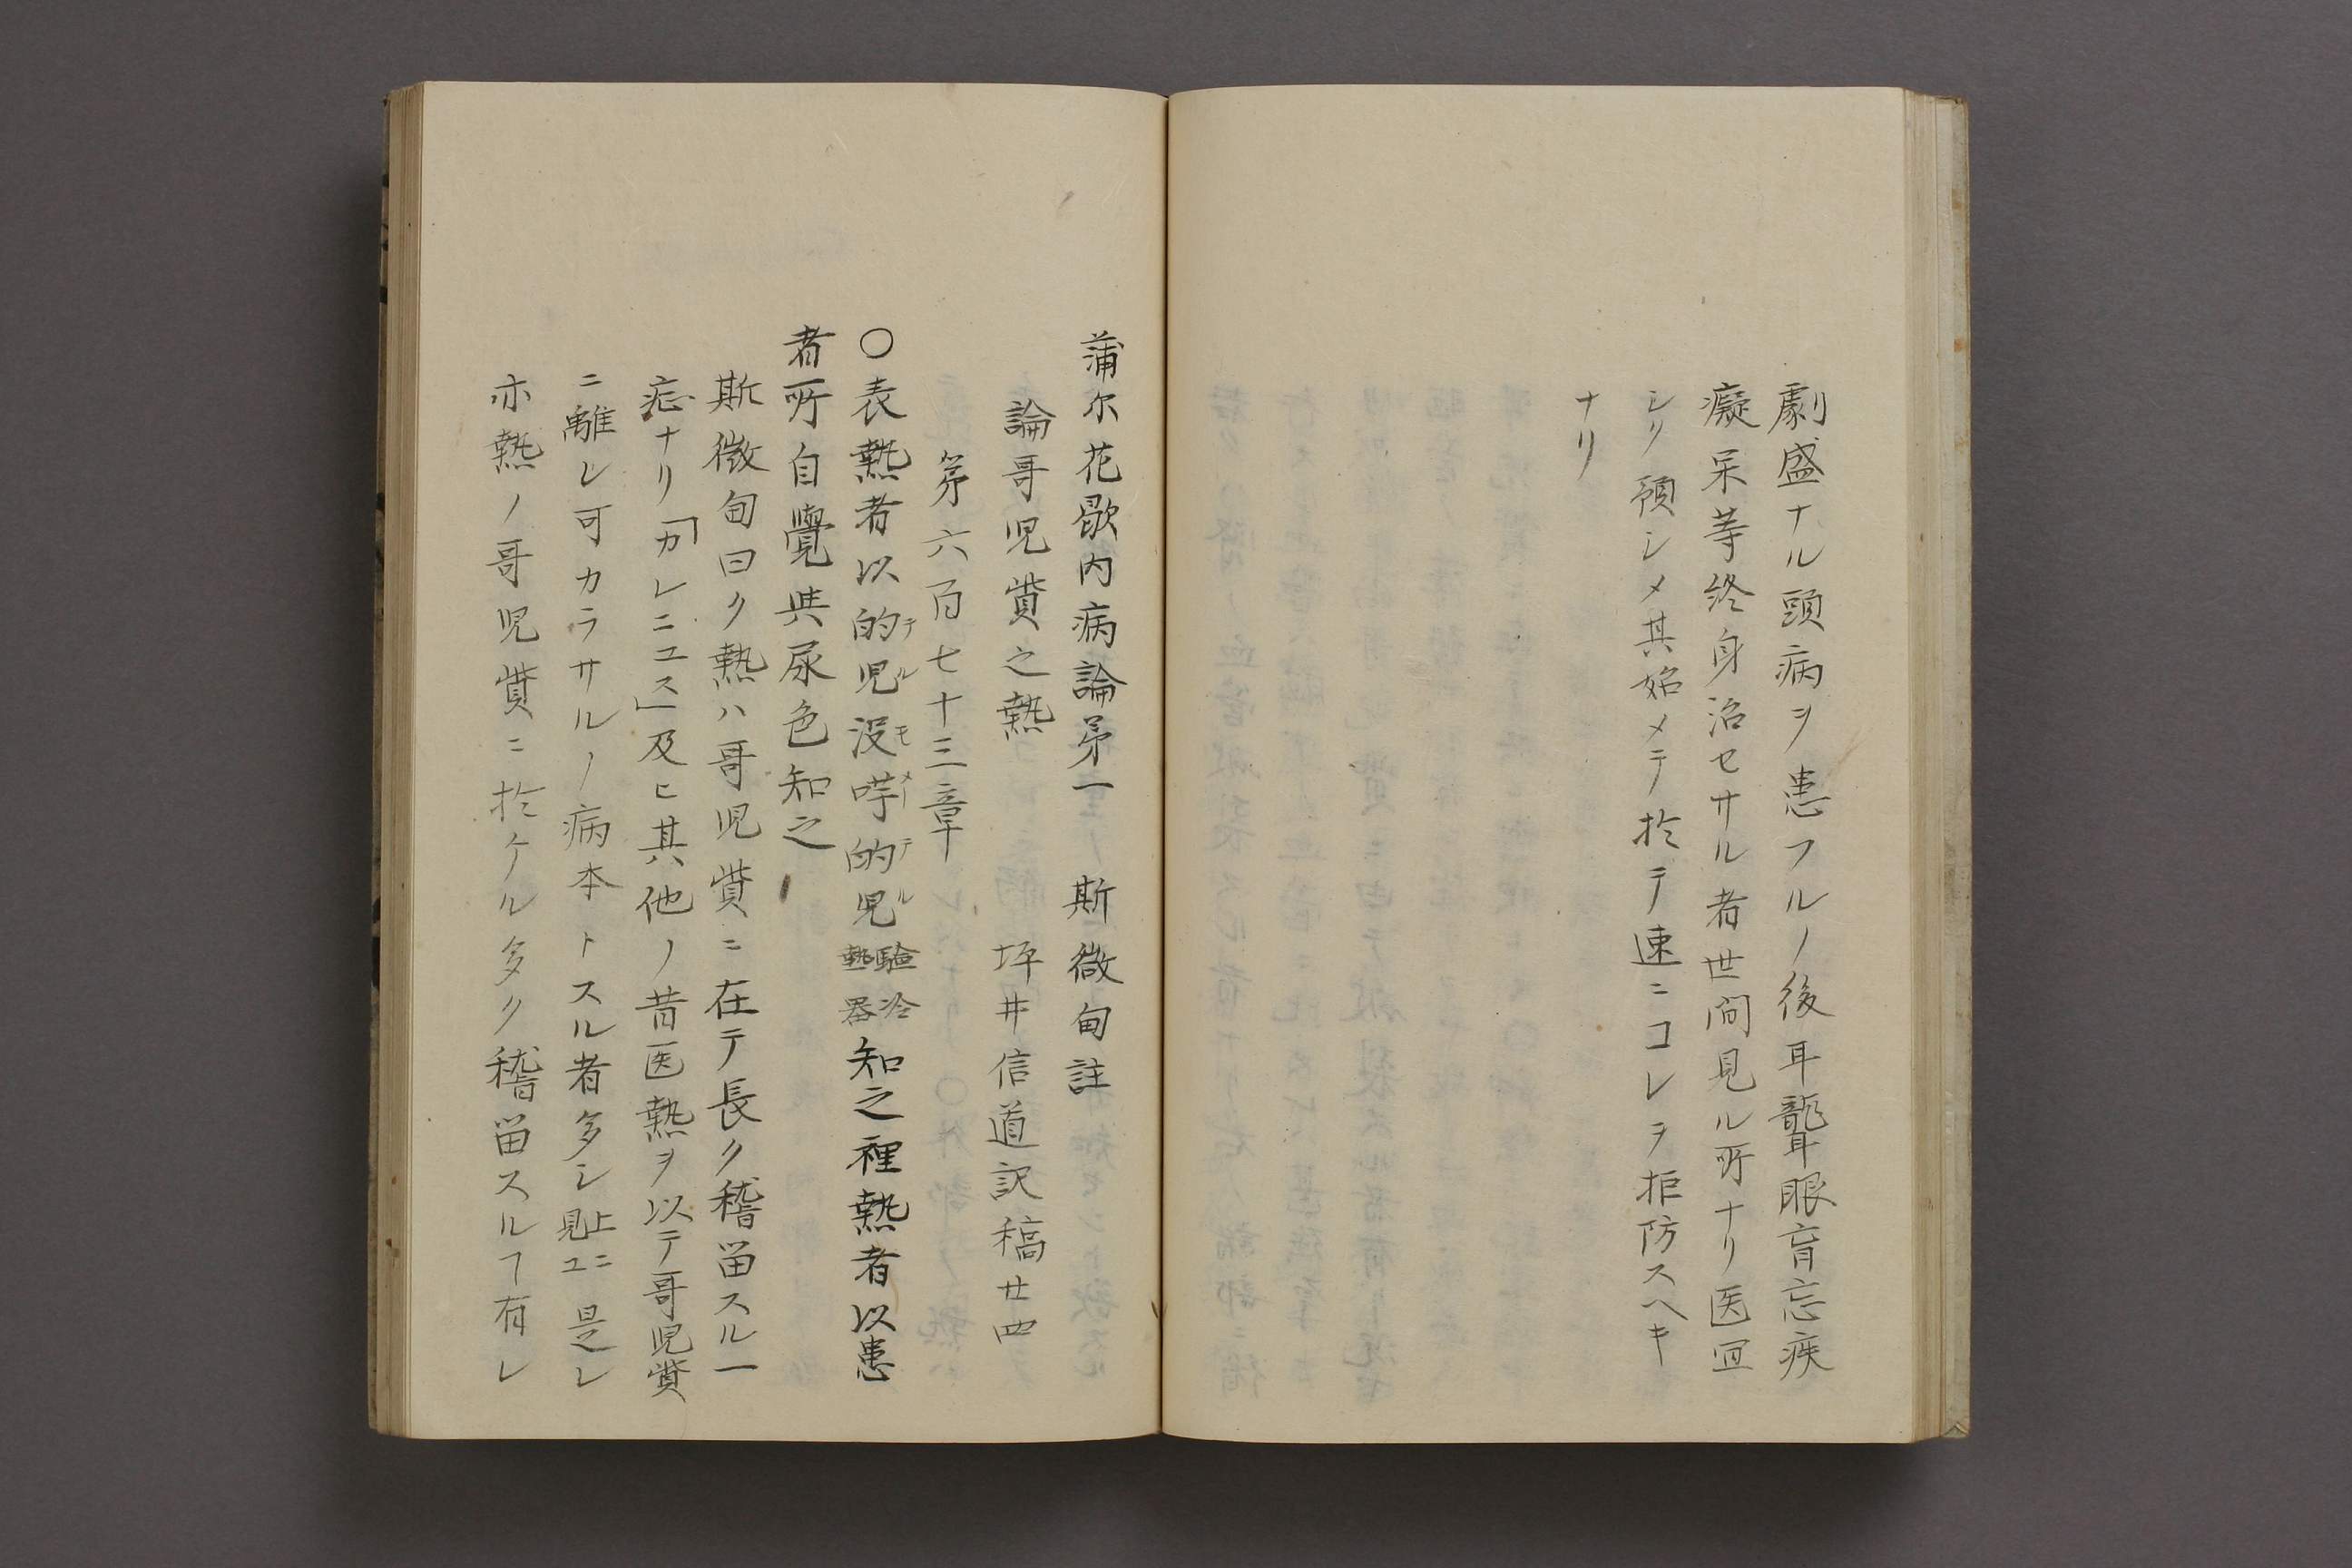 劇盛ナル頭病ヲ患フルノ後耳聾眼盲忘疾
癡呆等終身治セサル者世間見ル所ナリ医冝
シク預シメ其始メテ於テ速ニコレヲ拒防スヘキ
ナリ
蒲尔花歇内病論苐一 斯微甸註
論哥児賞之熱 坪井信道訳稿廿四
苐六百七十三章
〇表熱者以的児没哼的児驗冷熱器知之裡熱者以患
テルモメーテル
者所自覺與尿色知之
斯微甸曰ク熱ハ哥児賞ニ在テ長ク稽畄スル一
症ナリ「カレニユス」及ヒ其他ノ昔医熱ヲ以テ哥児賞
ニ離レ可カラサルノ病本トスル者多シ上ニ見ユ是レ
亦熱ノ哥児賞ニ於ケル多ク稽畄スルヿ有レ